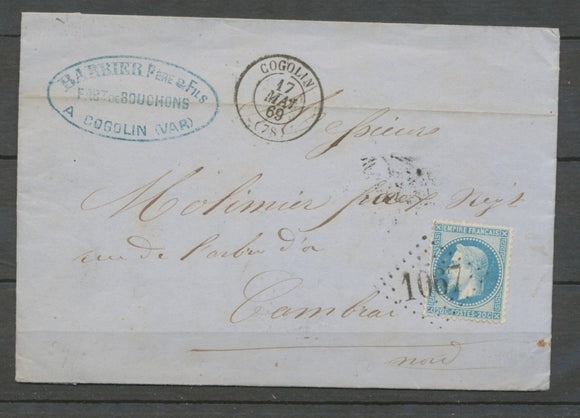 BARBIER PÈRE & FILS
FABT DE BOUCHONS
A COGOLIN (VAR)
COGOLIN
17
MAI
69
(78)
Messieurs
Molinier frères Négts
rue de l'arbre d'or
Cambrai
nord
EMPIRE FRANÇAIS
20C POSTES 20C
1067